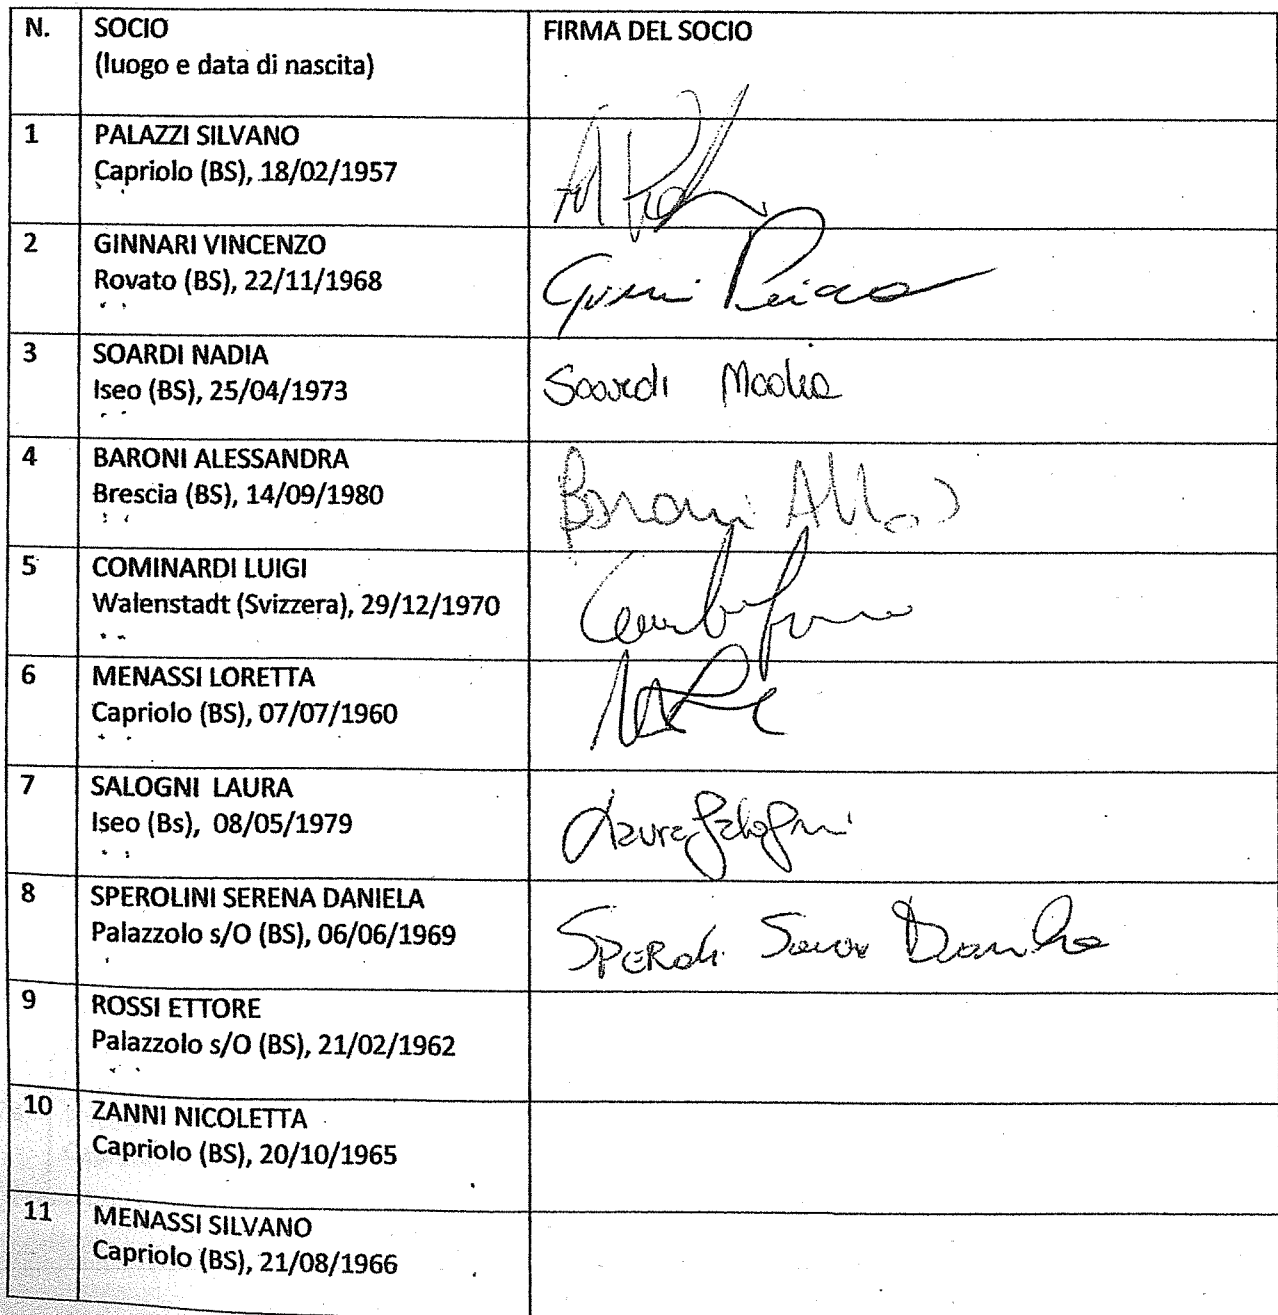 N. SOCIO FIRMA DEL SOCIO
(luogo e data di nascita)
1 PALAZZI SILVANO
Capriolo (BS), 18/02/1957
2 GINNARI VINCENZO
Rovato (BS), 22/11/1968
3 SOARDI NADIA
Iseo (BS), 25/04/1973
Soardi Nadia
4 BARONI ALESSANDRA
Brescia (BS), 14/09/1980
Baroni
5 COMINARDI LUIGI
Walenstadt (Svizzera), 29/12/1970
6 MENASSI LORETTA
Capriolo (BS), 07/07/1960
7 SALOGNI LAURA
Iseo (Bs), 08/05/1979
Laura Salogni
8 SPEROLINI SERENA DANIELA
Palazzolo s/O (BS), 06/06/1969
9 ROSSI ETTORE
Palazzolo s/O (BS), 21/02/1962
10 ZANNI NICOLETTA
Capriolo (BS), 20/10/1965
11 MENASSI SILVANO
Capriolo (BS), 21/08/1966